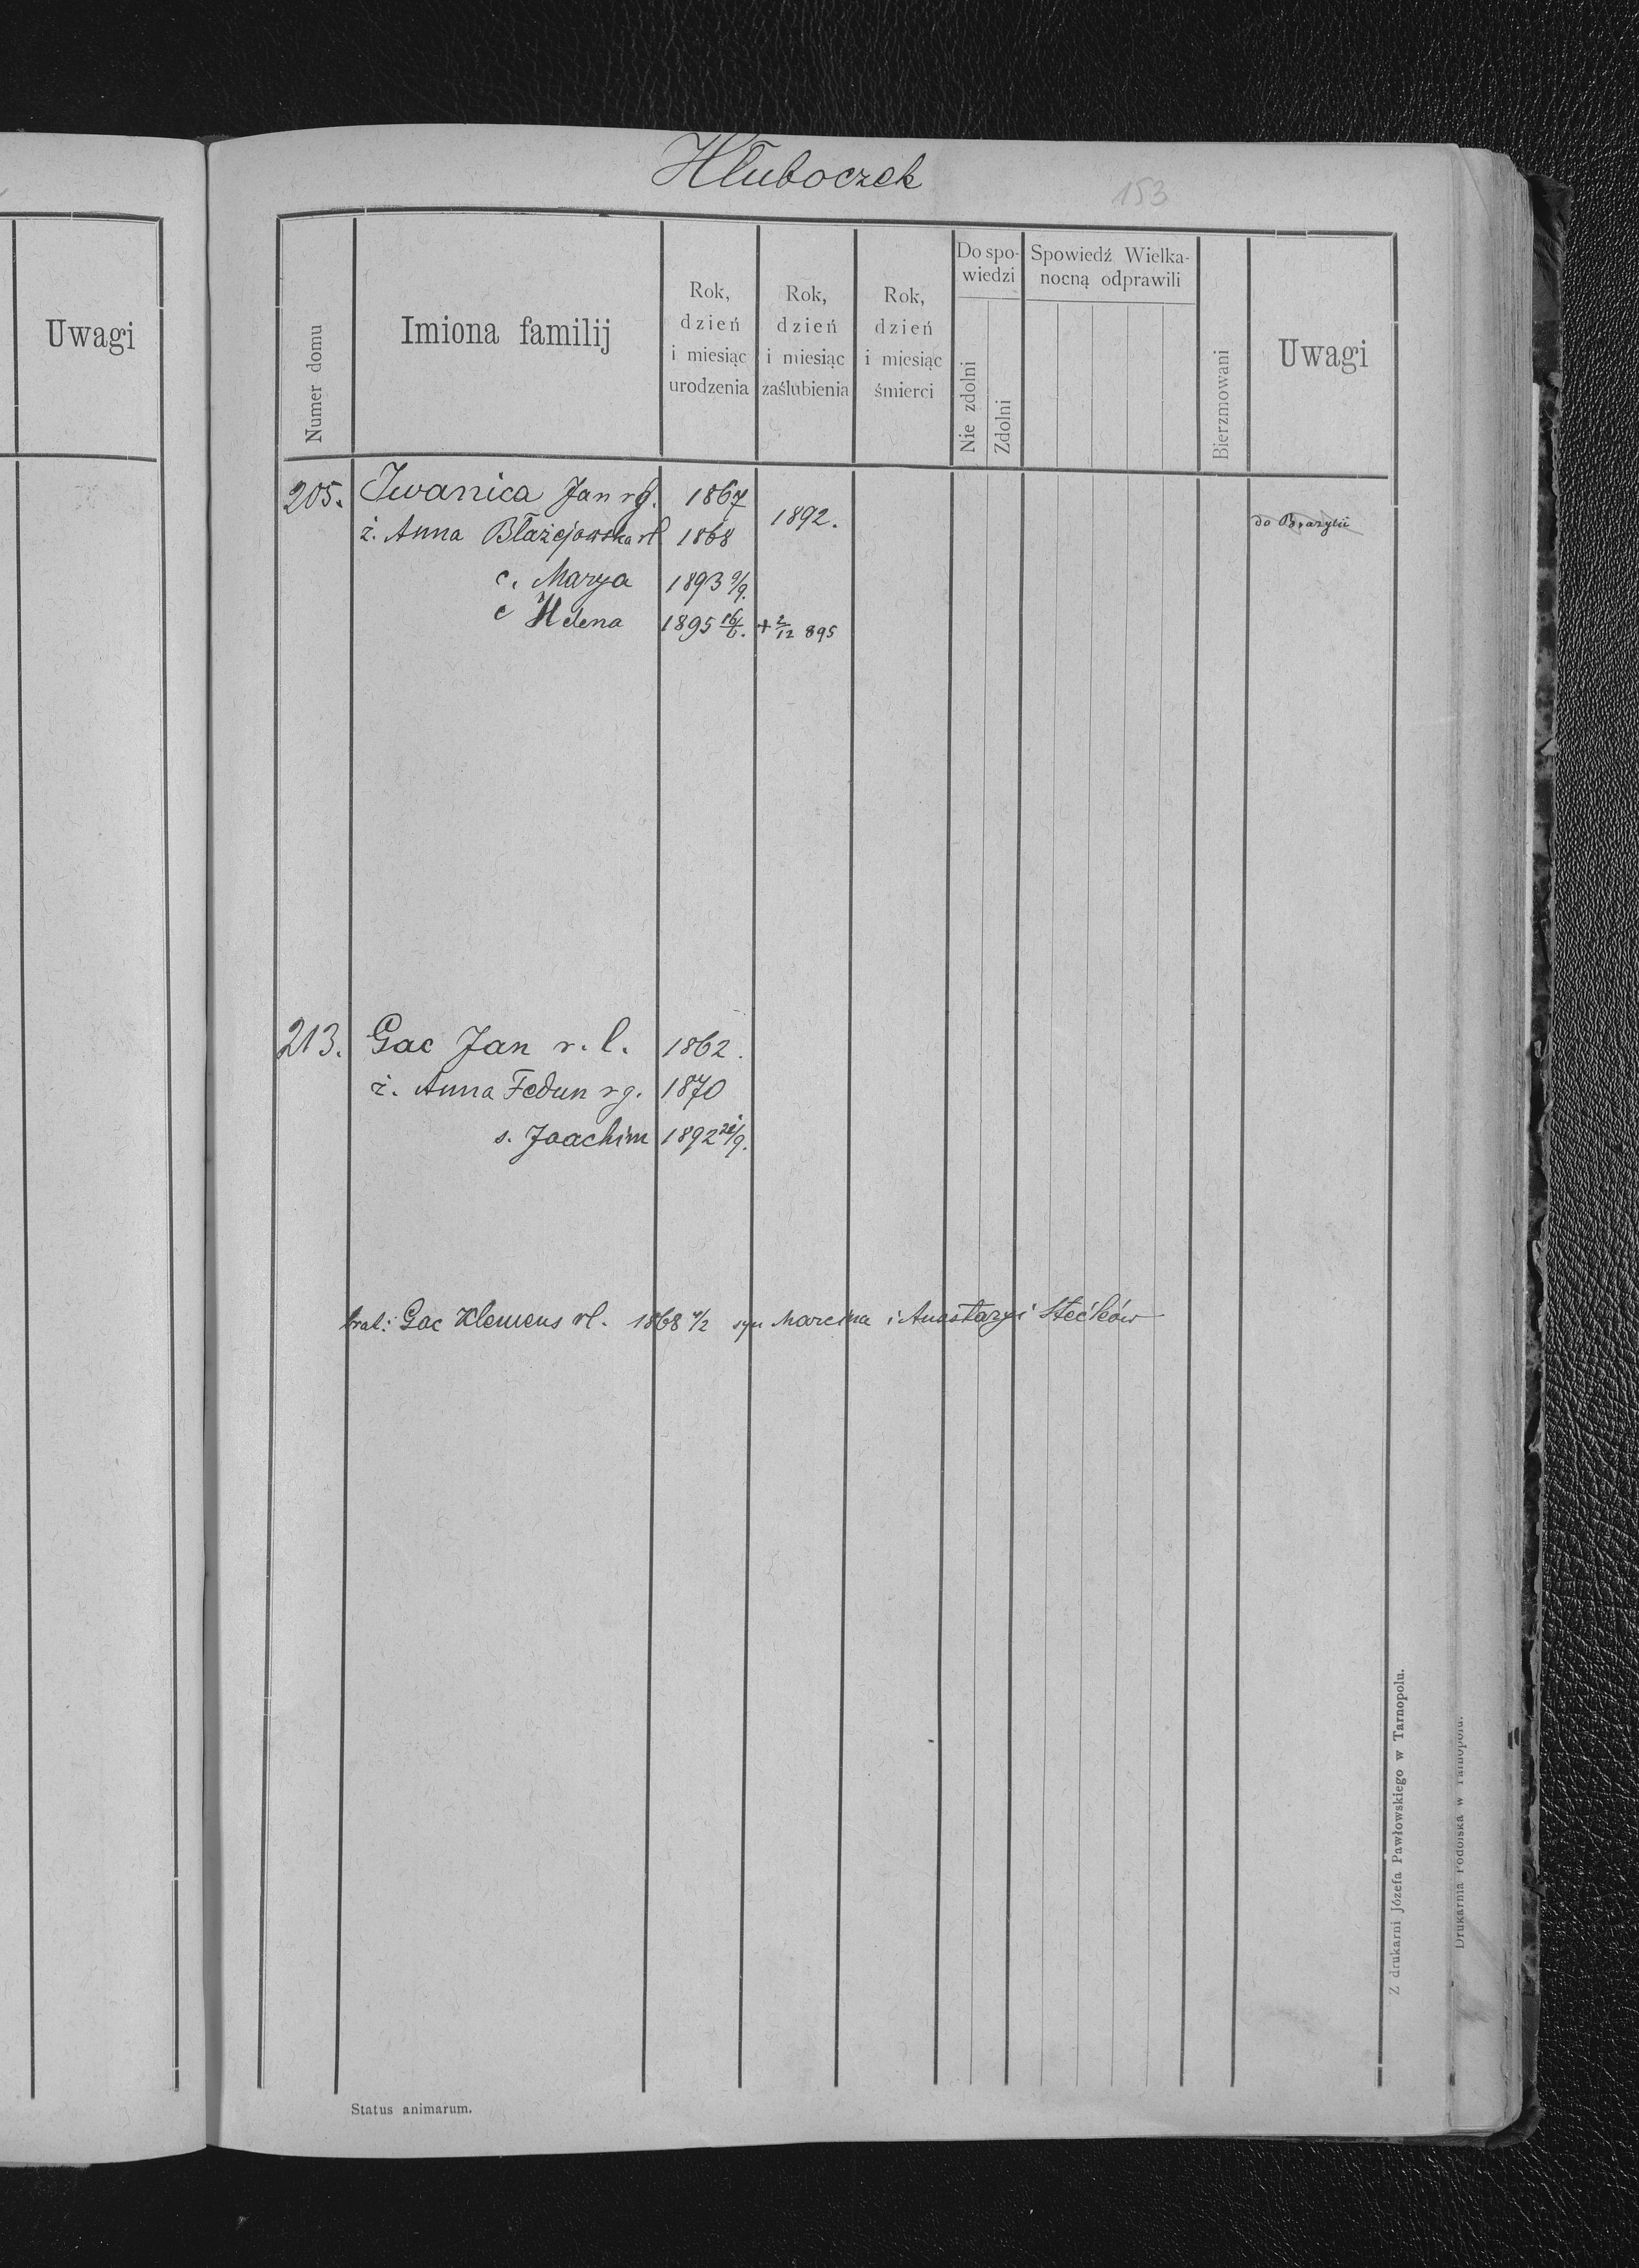 Hłuboczek
153
Uwagi
Numer domu
Imiona familij
Rok, dzień i miesiąc urodzenia
Rok, dzień i miesiąc zaślubienia
Rok, dzień i miesiąc śmierci
Do spo-
wiedzi
Nie zdolni
Zdolni
Spowiedź Wielka-
nocną odprawili
Bierzmowani
Uwagi
205. Iwanica Jan rg. 1867 1892. do Brazylii
ż. Anna Błażejowska rl 1868
c. Marya 1893 9/9.
c Helena 1895 16/6. + 2/12 895
213. Gac Jan r. l. 1862.
ż. Anna Fedun rg. 1870
s. Joachim 1892 /9.
brat: Gac Klemens rl. 1868 4/2 syn Marcina i Anastazyi Stećków
Status animarum.
Z drukarni Józefa Pawłowskiego w Tarnopolu.
Drukarnia Podolska w Tarnopolu.